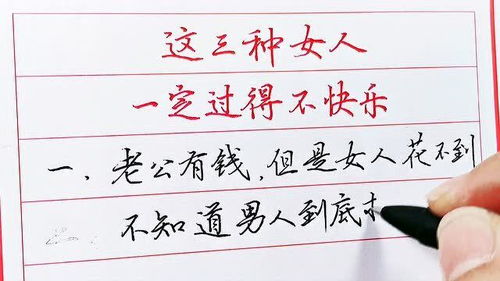 这三种女人
一定过得不快乐
一、老公有钱,但是女人花不到
不知道男人到底